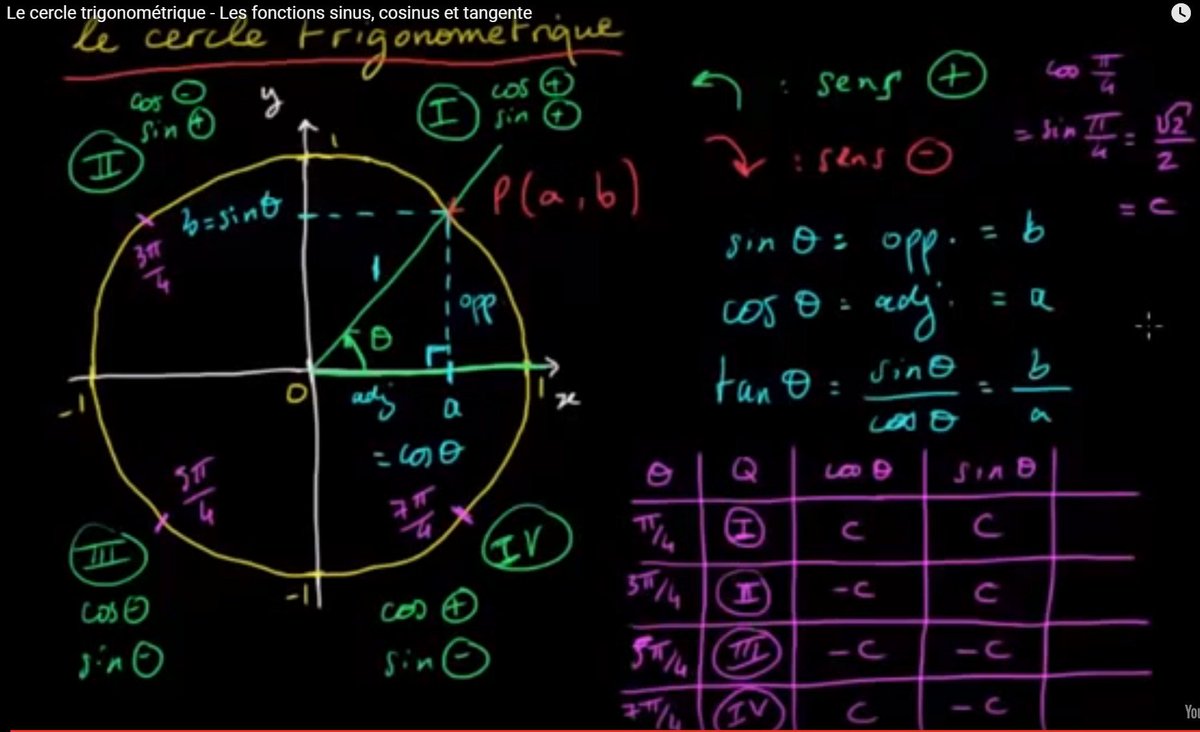 Le cercle trigonométrique - Les fonctions sinus, cosinus et tangente
le cercle trigonometrique
cos -
sin +
II
y
1
I
cos +
sin +
P(a,b)
b = sinθ
3π/4
1
opp
θ
-1
0
adj
a
1
x
= cosθ
5π/4
7π/4
III
cos -
sin -
-1
IV
cos +
sin -
: sens +
: sens -
cos π/4
= sin π/4 = √2/2
= c
sin θ = opp. = b
cos θ = adj. = a
tan θ = sinθ/cosθ = b/a
θ Q cosθ sinθ
π/4 I c c
3π/4 II -c c
5π/4 III -c -c
7π/4 IV c -c
You